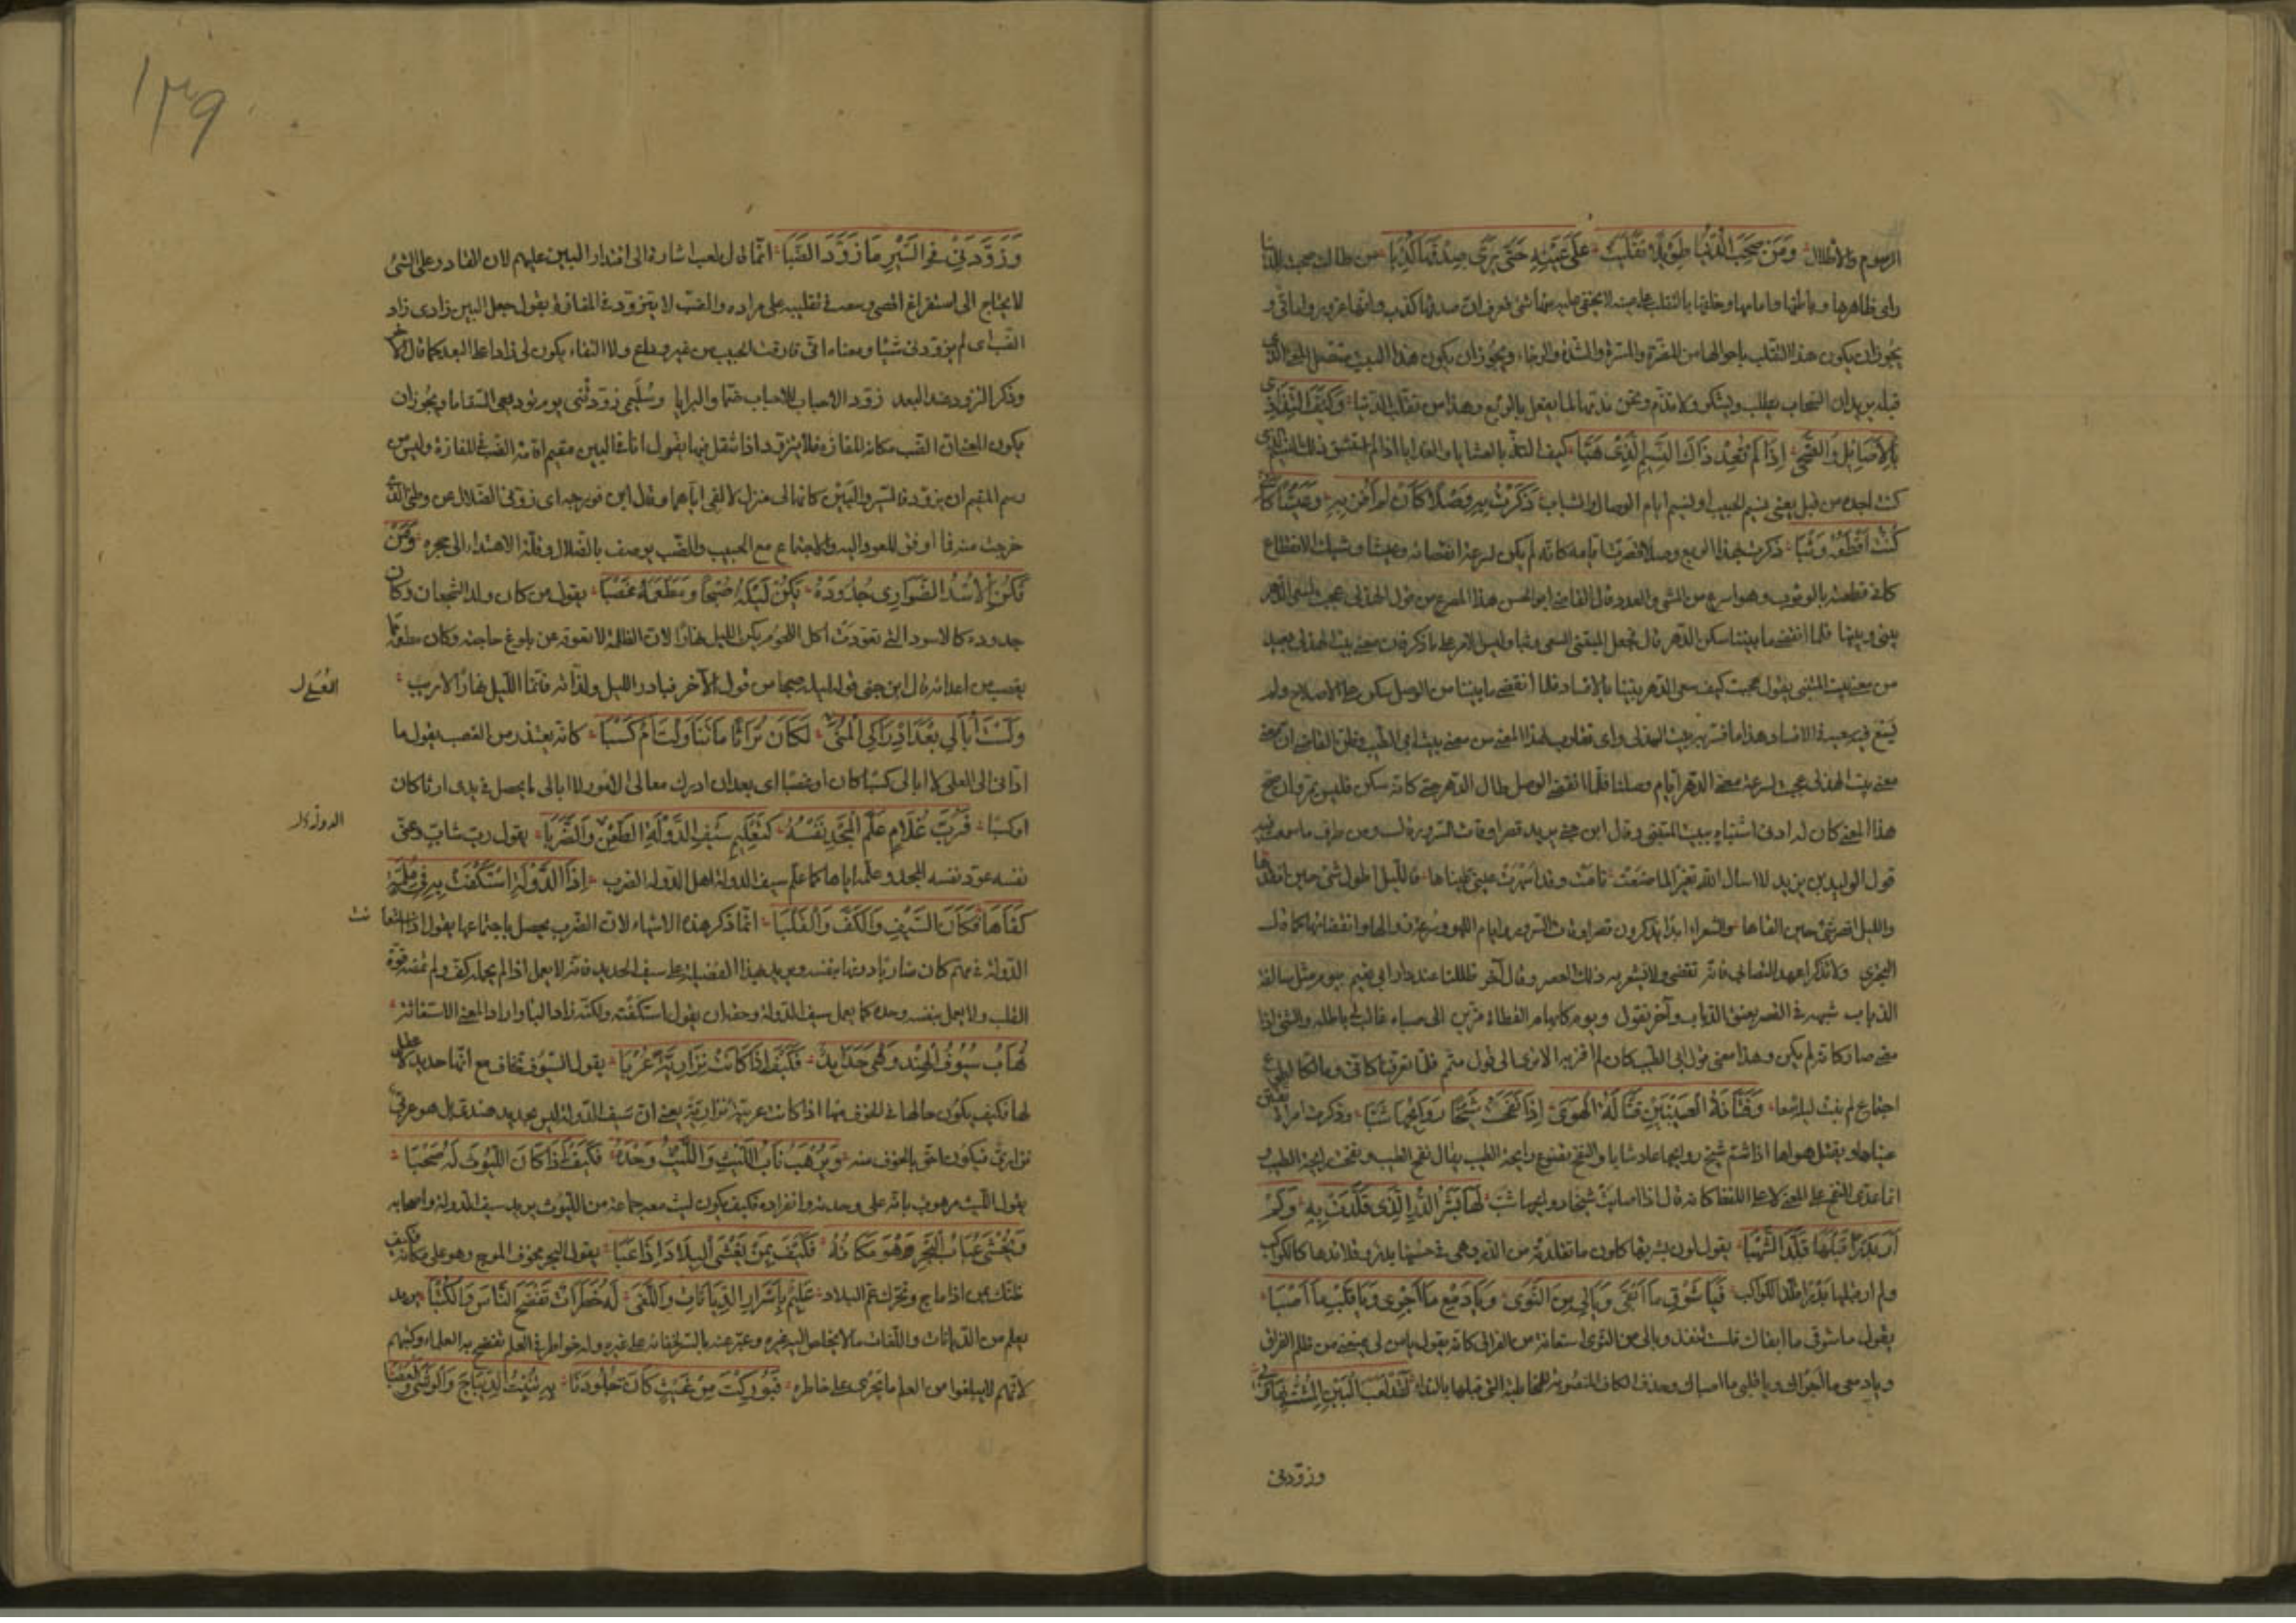 الرسوم والاطلال وَمَنْ صَحِبَ الدُّنْيَا طَوِيلًا تَقَلَّبَتْ عَلَى عَيْنِهِ حَتَّى يَرَى صِدْقَهَا كَذِبَا من طالت صحبته الدنيا
راى ظاهرها وباطنها وامامها وخلفها بالتقلب على عينه لا يخفى عليه منها شئ فعرف ان صدقها كذب وانها غرور وامانى و
يجوز ان يكون هذا التقلب باحوالها من المضرة والمسرة والشدة والرخاء ويجوز ان يكون هذا البيت متصل المعنى بالذى
قبله يريد ان السحاب يطلب ويشكر ولا يذم ونحن نذمها لما يفعل بالربع وهذا من تقلب الدنيا وَكَيْفَ التِذَاذِى
بِالأَصَائِلِ وَالضُّحَى إِذَا لَمْ يَعُدْ ذَاكَ النَّسِيمُ الَّذِى هَبَّا كيف التذ بالعشايا والغدايا اذا لم استنشق ذلك النسيم الذى
كنت اجده من قبل يعنى نسيم الحبيب او نسيم ايام الوصال والشباب ذَكَرْتُ بِهِ وَصْلًا كَأَنْ لَمْ أَفُزْ بِهِ وَعَيْشًا كَأَنِّى
كُنْتُ أَقْطَعُهُ وَثْبَا ذكرت بهذا الربع وصلا قصرت ايامه كانه لم يكن لسرعة انقضائه وعيشا وشيك الانقطاع
كانى قطعته بالوثوب وهو اسرع من المشى والعدو قال القاضى ابو الحسن هذا المصرع من قول الهذلى عجبت لسعى الدهر
بينى وبينها فلما انقضى ما بيننا سكن الدهر قال فجعل المتنبى السعى وثبا وليس الامر على ما ذكر فان معنى بيت الهذلى بعيد
من معنى بيت المتنبى يقول عجبت كيف سعى الدهر بيننا بالافساد فلما انقضى ما بيننا من الوصل سكن على الاصلاح ولم
يسع فيه سعيه فى الافساد هذا ما فسر به بيت الهذلى واى تقارب لهذا المعنى من معنى بيت ابى الطيب فظن القاضى ان معنى
معنى بيت الهذلى عجبت لسرعة مضى الدهر ايام وصلنا فلما انقضى الوصل طال الدهر حتى كانه سكن فليس يمر وان صح
هذا المعنى كان له ادنى اشتباه ببيت المتنبى وقال ابن جنى يريد قصر اوقات السرور قال ومن طرف ما سمعت فيه
قول الوليد بن يزيد لا اسال الله تغييرا لما صنعت نامت وقد اسهرت عينى عيناها فالليل اطول شئ حين افقدها
والليل اقصر شئ حين القاها والشعراء ابدا يذكرون قصر اوقات السرور وايام اللهو وسرعة زوالها وانقضائها كما قال
البحترى ولا تذكرا عهد التصابى فانه تقضى ولا نشعر به ذلك العصر وقال آخر ظللنا عند دار ابى نعيم بيوم مثل سالفة
الذباب شبهه فى القصر بعنق الذباب وآخر يقول ويوم كابهام القطاة مزين الى صباه غالب لى باطله والشئ اذا
مضى صار كانه لم يكن وهذا معنى قول ابى الطيب كان لم افز به الا ترى الى قول متمم فلما تفرقنا كانى ومالكا لطول
اجتماع لم نبت ليلة معا وَفَتَّانَةُ الْعَيْنَيْنِ قَتَّالَةُ الْهَوَى إِذَا نَفَحَتْ شَيْخًا رَوَائِحُهَا شَبَّا وذكرت امراة تفتن
عيناها ويقتل هواها اذا شم شيخ روايحها عاد شابا والنفح تضوع رايحة الطيب يقال نفح الطيب ونفحت رايحة الطيب و
انما عدى النفح على المعنى لا على اللفظ كانه قال اذا اصابت شيخا روايحها شب لَهَا بَشَرُ الدُّرِّ الَّذِى قُلِّدَتْ بِهِ وَلَمْ
أَرَ بَدْرًا قَبْلَهَا قُلِّدَ الشُّهْبَا يقول لون بشرتها كلون ما تقلدته من الدر وهى فى حسنها بدر وقلائدها كالكواكب
ولم ار قبلها بدرا قلد الكواكب فَيَا شَوْقِ مَا أَبْقَى وَيَا لِى مِنَ النَّوَى وَيَا دَمْعِ مَا أَجْرَى وَيَا قَلْبِ مَا أَصْبَى
يقول يا شوقى ما ابقاك فلست تنفد ويا لى من النوى استغاثة من الفراق كانه يقول يا من لى يمنعنى من ظلم الفراق
ويا دمعى ما اجراك ويا قلبى ما اصباك وحذف الكاف المنصوبة للمخاطبة التى قبلها بالنداء لَقَدْ لَعِبَ الْبَيْنُ الْمُشِتُّ بِهَا وَبِى
وزوّدنى
١٣٩
وَزَوَّدَنِى فِى السَّيْرِ مَا زَوَّدَ الضَّبَّا انما قال لعب اشارة الى اقتدار البين عليهم لان القادر على الشئ
لا يحتاج الى استفراغ اقصى وسعه فى تقليبه على مراده والضب لا يتزود فى المفازة يقول جعل البين زادى زاد
الضب اى لم يزودنى شيئا ومعناه انى فارقت الحبيب من غير وداع ولا التقاء يكون لى زادا على البعد كما قال الآخر
وذكر التزود عند البعد زوّد الاحباب للاحباب ضما والتزاما وسُلَيمى زوّدتنى يوم توديعى السقاما ويجوز ان
يكون المعنى ان الضب مكانه المفازة فلا يتزود اذا انتقل فيها يقول انا فى البين مقيم اقامة الضب فى المفازة وليس من
رسم المقيم ان يتزود فالسير والبين كانهما لى منزل لالفى اياهما وقال ابن فورجه اى زوّدنى الضلال عن وطنى الذى
خرجت منه فما اوفق للعود اليه والاجتماع مع الحبيب والضب يوصف بالضلال وقلة الاهتداء الى جحره وَمَنْ
تَكُنِ الأُسْدُ الضَّوَارِى جُدُودَهُ يَكُنْ لَيْلُهُ صُبْحًا وَمَطْعَمُهُ غَصْبَا يقول من كان ولد الشجعان وكان
جدوده كالاسود التى تعودت اكل اللحوم يكن الليل نهارا له لان الظلمة لا تعوقه عن بلوغ حاجته وكان مطعمه مما
يغصب من اعدائه قال ابن جنى قوله ليله صبحا من قول الآخر فبادر الليل ولذاته فانما الليل نهار الاريب
وَلَسْتُ أُبَالِى بَعْدَ إِدْرَاكِىَ الْعُلَى أَكَانَ تُرَاثًا مَا تَنَاوَلْتُ أَمْ كَسْبَا كانه يعتذر من الغصب يقول ما
ادانى الى العلى لا ابالى كسبا كان او غصبا اى بعد ان ادرك معالى الامور لا ابالى ما يحصل فى يدى ارثا كان
ام كسبا فَرُبَّ غُلَامٍ عَلَّمَ الْمَجْدَ نَفْسَهُ كَتَعْلِيمِ سَيْفِ الدَّوْلَةِ الطَّعْنَ وَالضَّرْبَا يقول رب شاب
نفسه عود نفسه المجد وعلمه اياها كما علم سيف الدولة اهل الدولة الضرب إِذَا الدَّوْلَةُ اسْتَكْفَتْ بِهِ فِى مُلِمَّةٍ
كَفَاهَا فَكَانَ السَّيْفَ وَالْكَفَّ وَالْقَلْبَا انما ذكر هذه الاشياء لان الضرب يحصل باجتماعها يقول اذا استعانت
الدولة فى مهم كان ضاربا دونها بنفسه ويريد بهذا تفضيله على سيف الحديد فانه لا يعمل اذا لم يحمله كف ولم تمضه قوة
القلب ولا يعمل بنفسه وحده كما يعمل سيف الدولة وحقه ان يقول استكفته ولكنه زاد الباء واراد المعنى الاستغاثة
تُهَابُ سُيُوفُ الْهِنْدِ وَهْىَ حَدَائِدٌ فَكَيْفَ إِذَا كَانَتْ نِزَارِيَّةً عُرْبَا يقول السيوف تخاف مع انها حديد لا عقل
لها فكيف يكون حالها فى الخوف منها اذا كانت عربية نزارية يعنى ان سيف الدولة ليس بحديد هندى بل هو عربى
نزارى فيكون احق بالخوف منه وَيُرْهَبُ نَابُ اللَّيْثِ وَاللَّيْثُ وَحْدَهُ فَكَيْفَ إِذَا كَانَ اللُّيُوثُ لَهُ صَحْبَا
يقول الليث مرهوب نابه على وحدته وانفراده فكيف يكون ليث معه جماعة من الليوث يريد سيف الدولة واصحابه
وَيُخْشَى عُبَابُ الْبَحْرِ وَهْوَ مَكَانَهُ فَكَيْفَ بِمَنْ يَغْشَى الْبِلَادَ إِذَا عَبَّا يقول البحر مخوف الموج وهو على مكانه فكيف
ظنك بمن اذا ماج وتحرك عم البلاد عَلِيمٌ بِأَسْرَارِ الدِّيَانَاتِ وَاللُّغَى لَهُ خَطَرَاتٌ تَفْضَحُ النَّاسَ وَالْكُتْبَا يريد
يعلم من الديانات واللغات ما لا يخلص اليه غيره وعبر عنه بالسر لخفائه على غيره وله خواطر فى العلم تفضح به العلماء وكتبهم
لانهم لم يبلغوا من العلم ما يجرى على خاطره فَبُورِكْتَ مِنْ غَيْثٍ كَأَنَّ جُلُودَنَا بِهِ تُنْبِتُ الدِّيبَاجَ وَالْوَشْىَ وَالْعَصْبَا